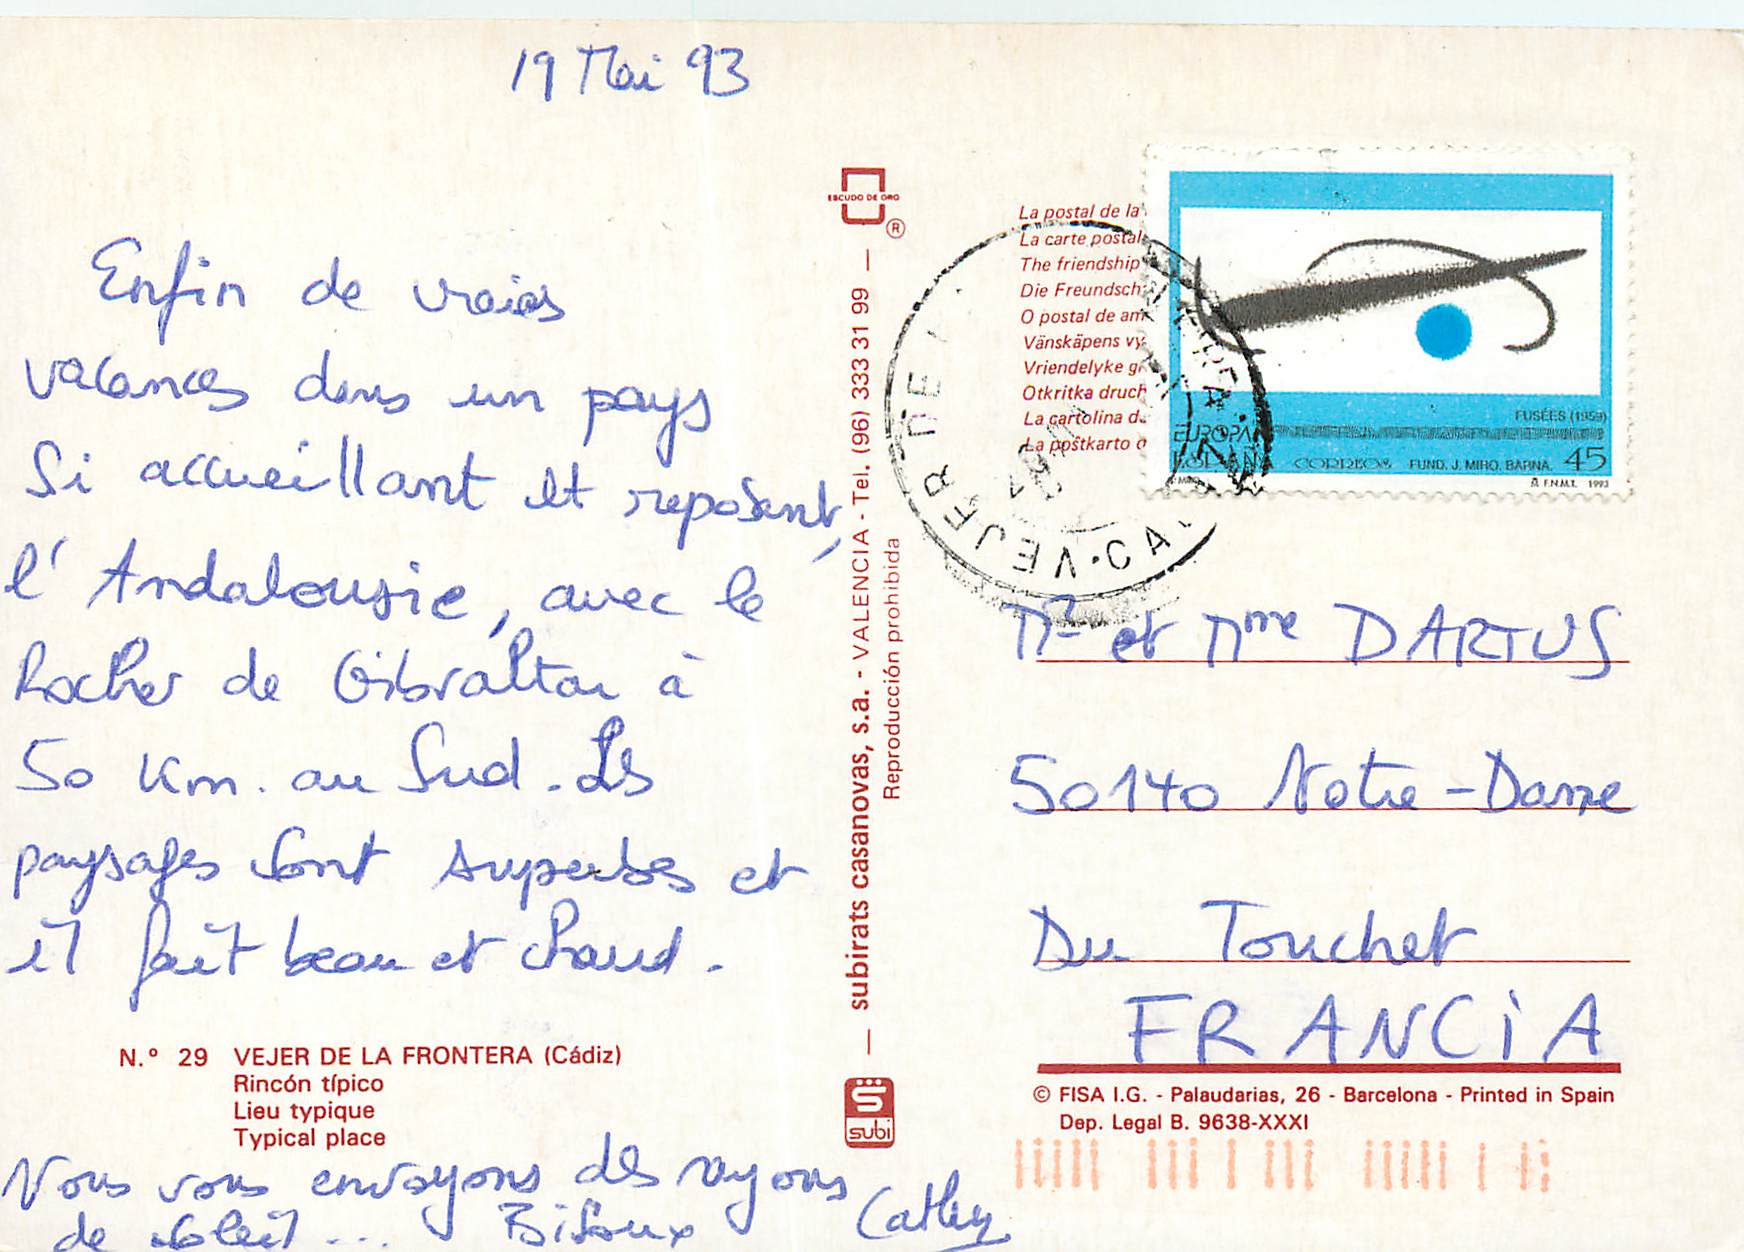 19 Mai 93
Enfin de vraies
vacances dans un pays
si accueillant et reposant,
l'Andalousie, avec le
Rocher de Gibraltar à
50 Km. au Sud. Les
paysages sont superbes et
il fait beau et chaud.
N.º 29 VEJER DE LA FRONTERA (Cádiz)
Rincón típico
Lieu typique
Typical place
Nous vous envoyons des rayons
de soleil... Bisoux Cathy
ESCUDO DE ORO
®
subirats casanovas, s.a. - VALENCIA - Tel. (96) 333 31 99
Reproducción prohibida
subi
La postal de la
La carte postal
The friendship
Die Freundsch
O postal de am
Vänskäpens vy
Vriendelyke gr
Otkritka druch
La cartolina d
La poŝtkarto
FUSÉES (1959)
EUROPA
ESPAÑA CORREOS FUND. J. MIRO. BARNA. 45
F.N.M.T. 1993
VEJER DE
Mr et Mme DARTUS
50140 Notre-Dame
Du Touchet
FRANCIA
© FISA I.G. - Palaudarias, 26 - Barcelona - Printed in Spain
Dep. Legal B. 9638-XXXI